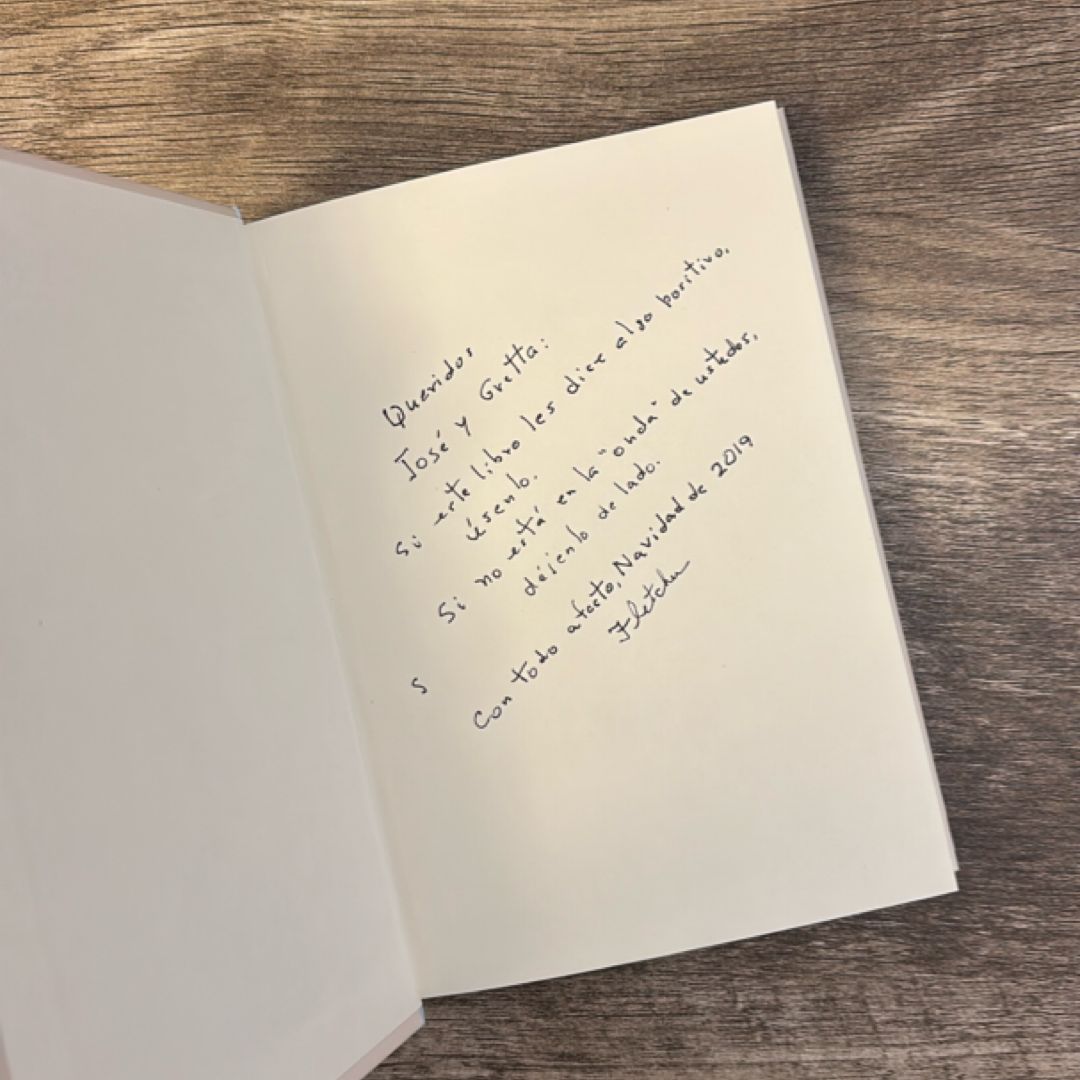 Queridos
José y Gretta:
Si este libro les dice algo positivo,
úsenlo.
Si no está en la "onda" de ustedes,
déjenlo de lado.
S
Con todo afecto, Navidad de 2019
Fletcher